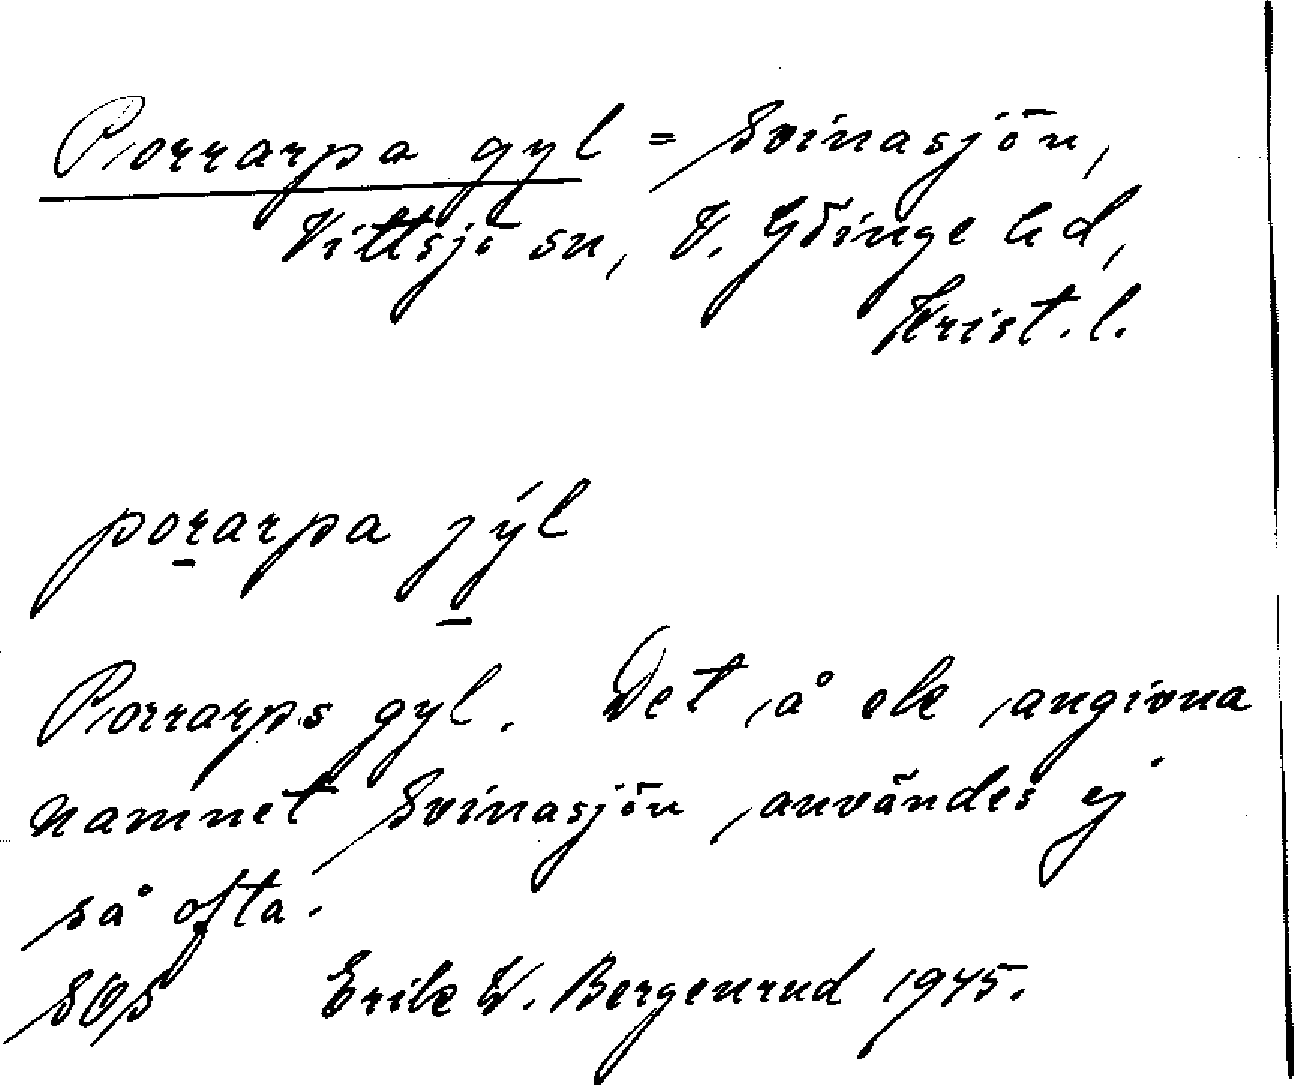 Porrarpa gyl = Svinasjön,
Vittsjö sn, V. Göinge hd,
Krist. l.
porarpa jýl
Porrarps gyl. Det å ek angivna
namnet Svinasjön användes ej
så ofta.
SOS Erik W. Bergenrud 1945.